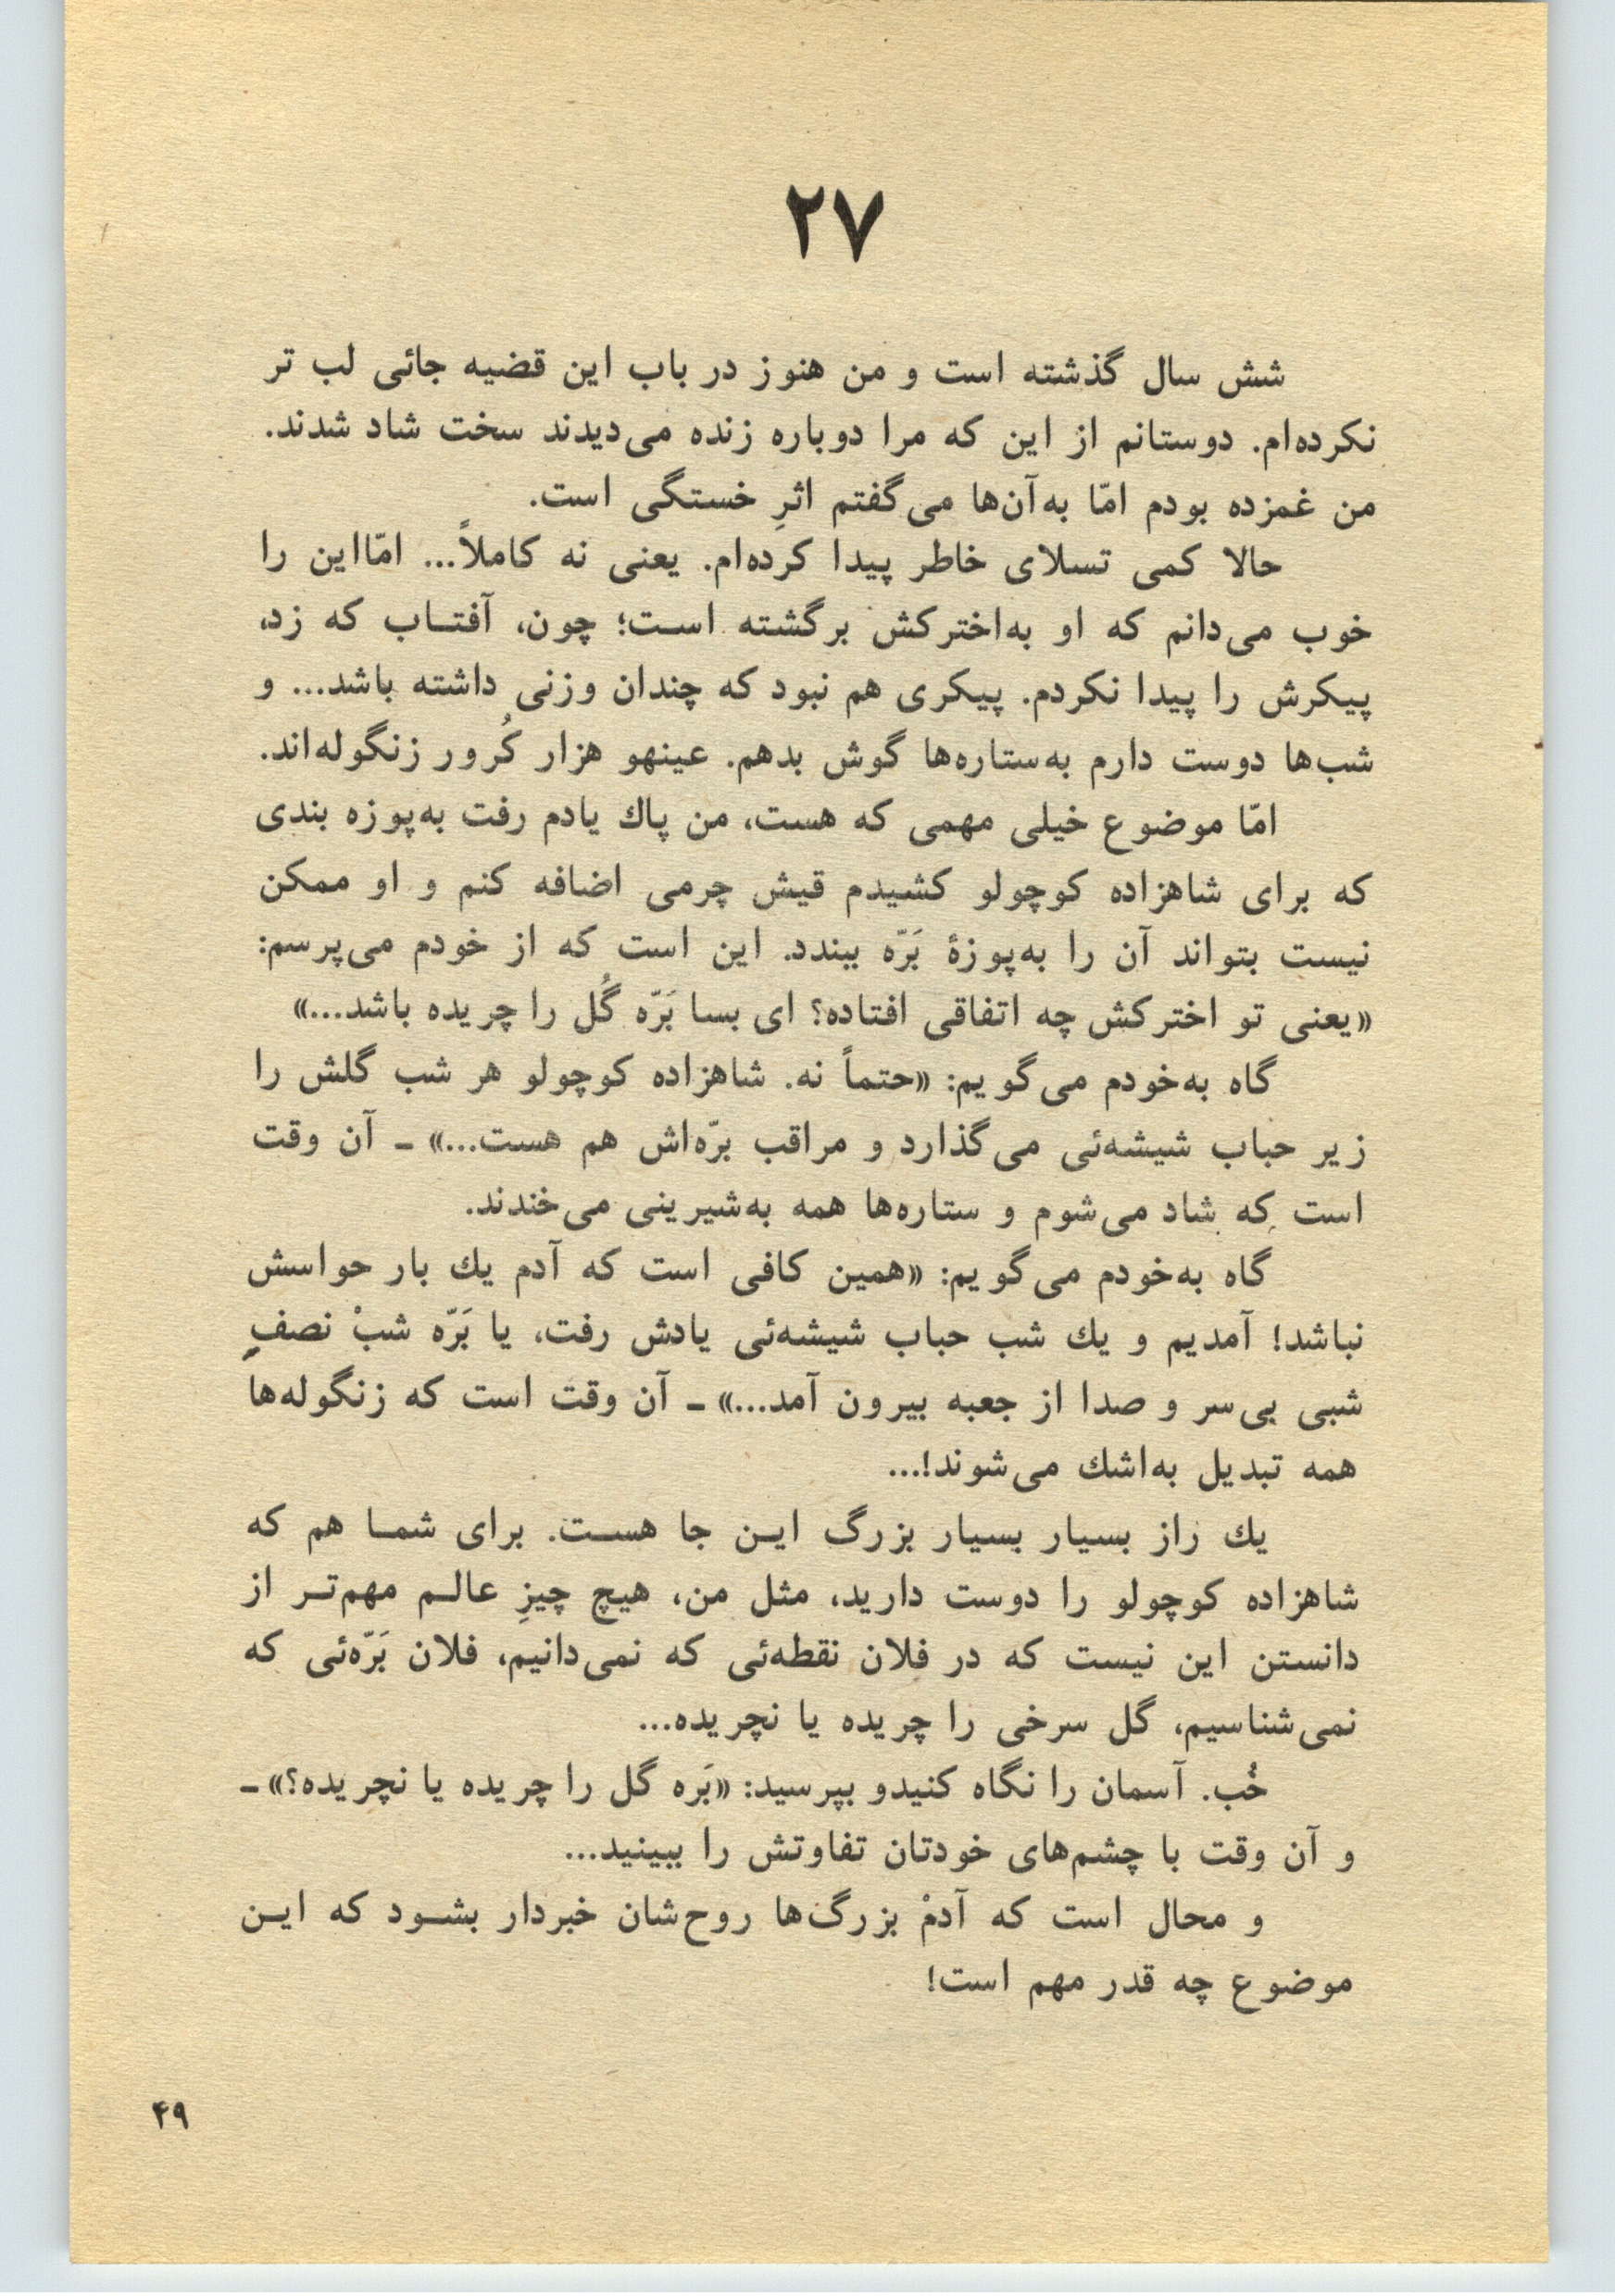 ۲۷
شش سال گذشته است و من هنوز در باب این قضیه جائی لب تر
نکرده‌ام. دوستانم از این که مرا دوباره زنده می‌دیدند سخت شاد شدند.
من غمزده بودم امّا به‌آن‌ها می‌گفتم اثرِ خستگی است.
حالا کمی تسلای خاطر پیدا کرده‌ام. یعنی نه کاملاً... امّااین را
خوب می‌دانم که او به‌اخترکش برگشته است؛ چون، آفتاب که زد،
پیکرش را پیدا نکردم. پیکری هم نبود که چندان وزنی داشته باشد... و
شب‌ها دوست دارم به‌ستاره‌ها گوش بدهم. عینهو هزار کُرور زنگوله‌اند.
امّا موضوع خیلی مهمی که هست، من پاك یادم رفت به‌پوزه بندی
که برای شاهزاده کوچولو کشیدم قیش چرمی اضافه کنم و او ممکن
نیست بتواند آن را به‌پوزهٔ بَرّه ببندد. این است که از خودم می‌پرسم:
«یعنی تو اخترکش چه اتفاقی افتاده؟ ای بسا بَرّه گُل را چریده باشد...»
گاه به‌خودم می‌گویم: «حتماً نه. شاهزاده کوچولو هر شب گلش را
زیر حباب شیشه‌ئی می‌گذارد و مراقب برّه‌اش هم هست...» ـ آن وقت
است که شاد می‌شوم و ستاره‌ها همه به‌شیرینی می‌خندند.
گاه به‌خودم می‌گویم: «همین کافی است که آدم یك بار حواسش
نباشد! آمدیم و یك شب حباب شیشه‌ئی یادش رفت، یا بَرّه شبْ نصفِ
شبی بی‌سر و صدا از جعبه بیرون آمد...» ـ آن وقت است که زنگوله‌ها
همه تبدیل به‌اشك می‌شوند!...
یك راز بسیار بسیار بزرگ این جا هست. برای شما هم که
شاهزاده کوچولو را دوست دارید، مثل من، هیچ چیزِ عالم مهم‌تر از
دانستن این نیست که در فلان نقطه‌ئی که نمی‌دانیم، فلان بَرّه‌ئی که
نمی‌شناسیم، گل سرخی را چریده یا نچریده...
خُب. آسمان را نگاه کنیدو بپرسید: «بَره گل را چریده یا نچریده؟» ـ
و آن وقت با چشم‌های خودتان تفاوتش را ببینید...
و محال است که آدمْ بزرگ‌ها روح‌شان خبردار بشود که این
موضوع چه قدر مهم است!
۴۹